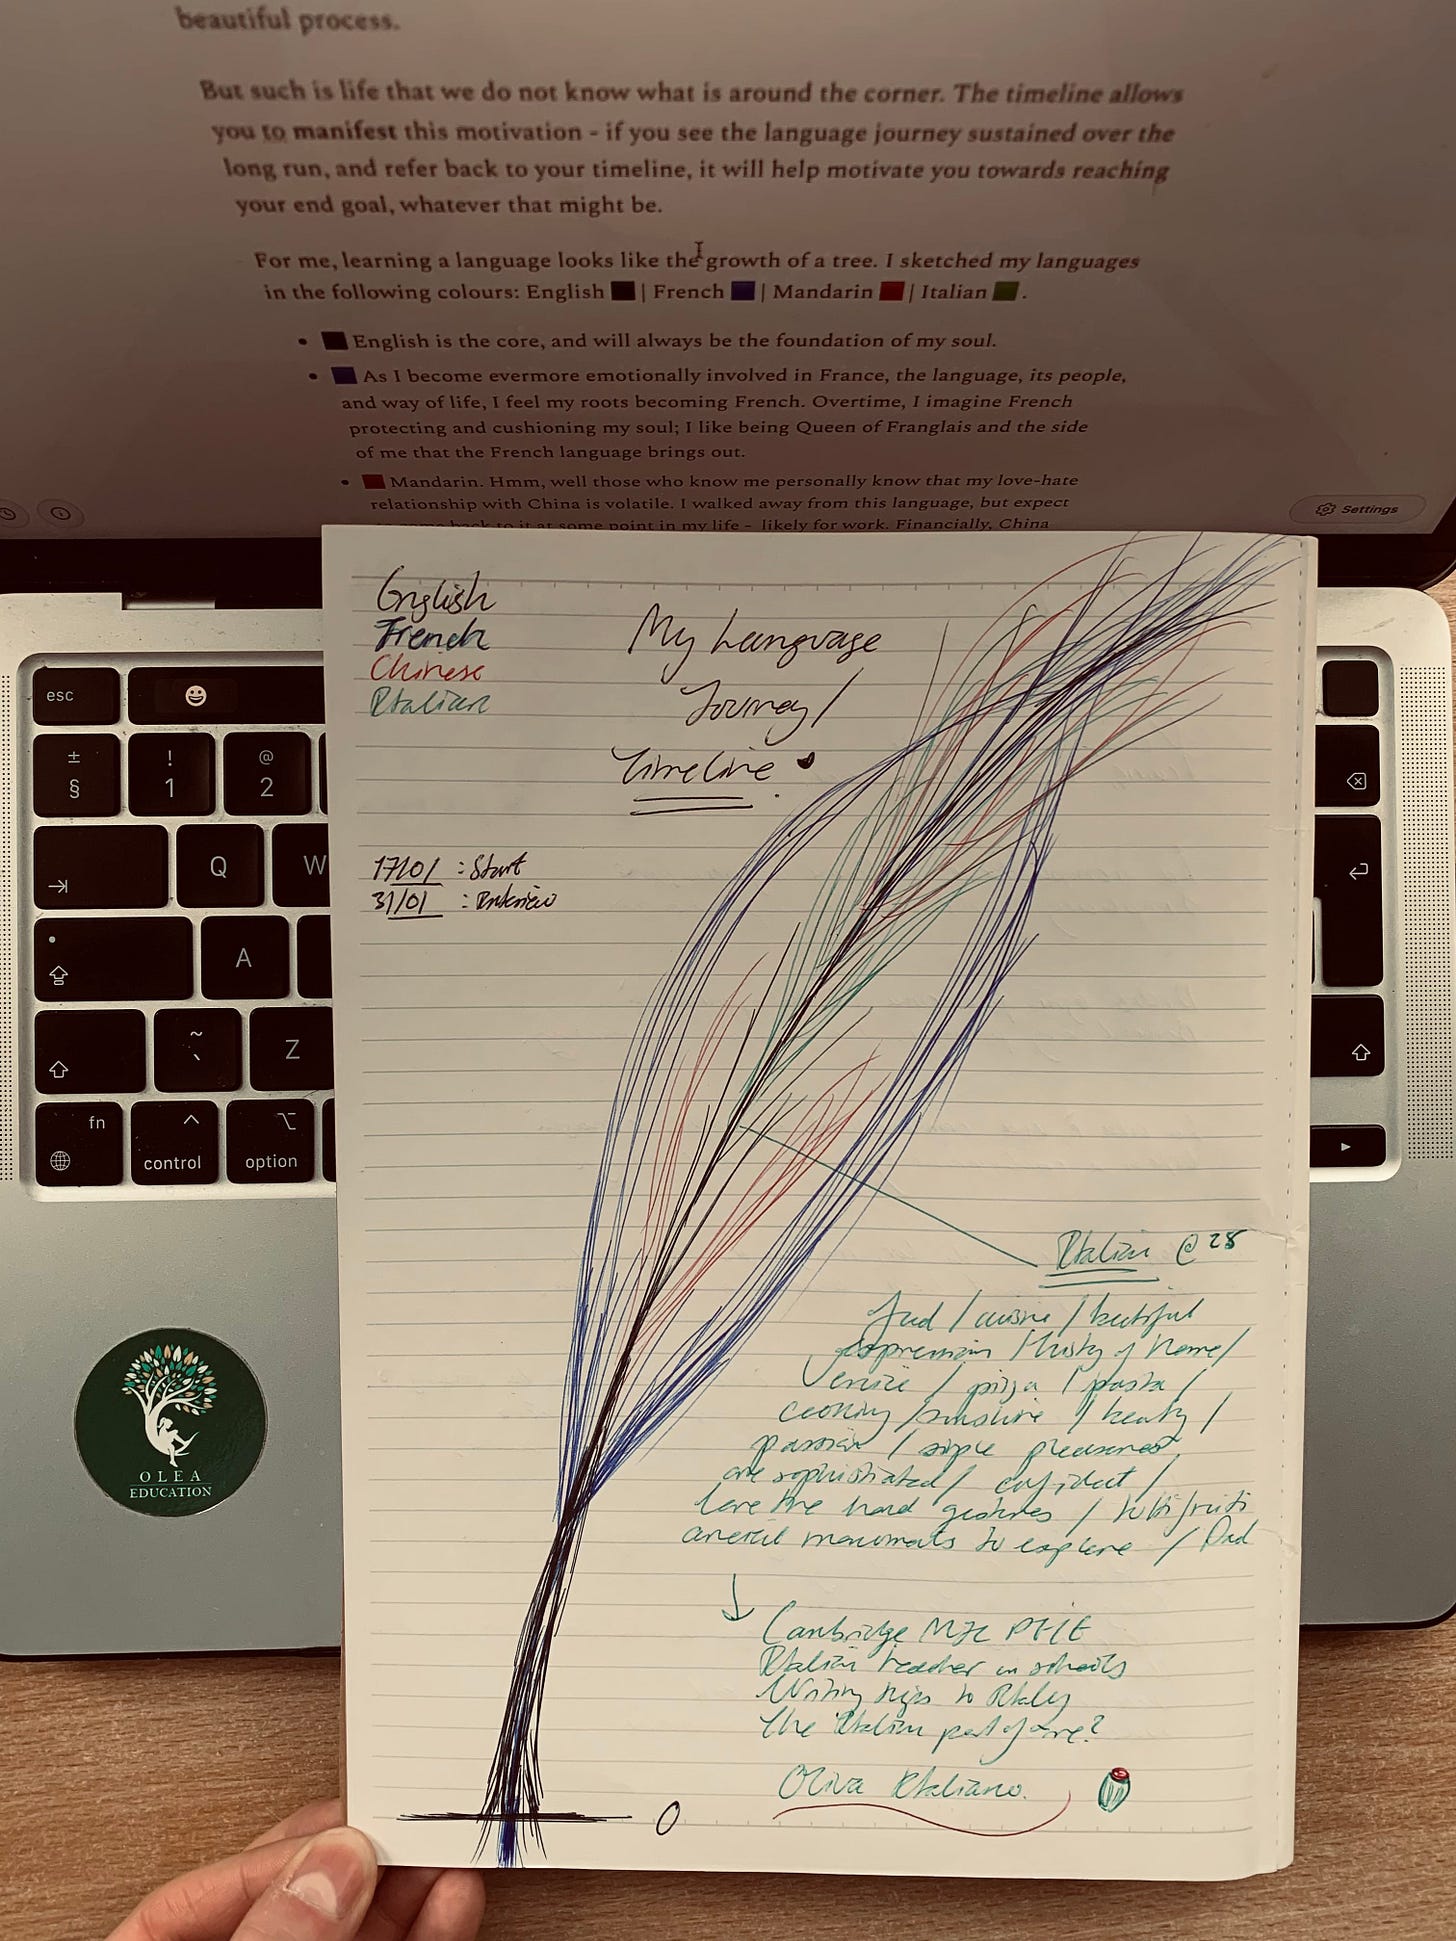 beautiful process.
But such is life that we do not know what is around the corner. The timeline allows
you to manifest this motivation - if you see the language journey sustained over the
long run, and refer back to your timeline, it will help motivate you towards reaching
your end goal, whatever that might be.
For me, learning a language looks like the growth of a tree. I sketched my languages
in the following colours: English | French | Mandarin | Italian .
• English is the core, and will always be the foundation of my soul.
• As I become evermore emotionally involved in France, the language, its people,
and way of life, I feel my roots becoming French. Overtime, I imagine French
protecting and cushioning my soul; I like being Queen of Franglais and the side
of me that the French language brings out.
• Mandarin. Hmm, well those who know me personally know that my love-hate
relationship with China is volatile. I walked away from this language, but expect
to come back to it at some point in my life - likely for work. Financially, China
Settings
English
French
Chinese
Italian
My Language
Journey/
Timeline
17/01 : Start
31/01 : Interview
Italian @ 28
Food / cuisine / beautiful
expression / History of Rome/
Venice / pizza / pasta /
cooking / sunshine / beauty /
passion / simple pleasures
are sophisticated / confident /
love the hand gestures / tutti frutti
ancient monuments to explore / Dad
Cambridge MFL PGCE
Italian teacher in schools
Writing trips to Italy
The Italian part of me?
Oliva Italiano.
0
esc
± § ! 1 @ 2
Q W
A
~ ` Z
fn control option
OLEA
EDUCATION